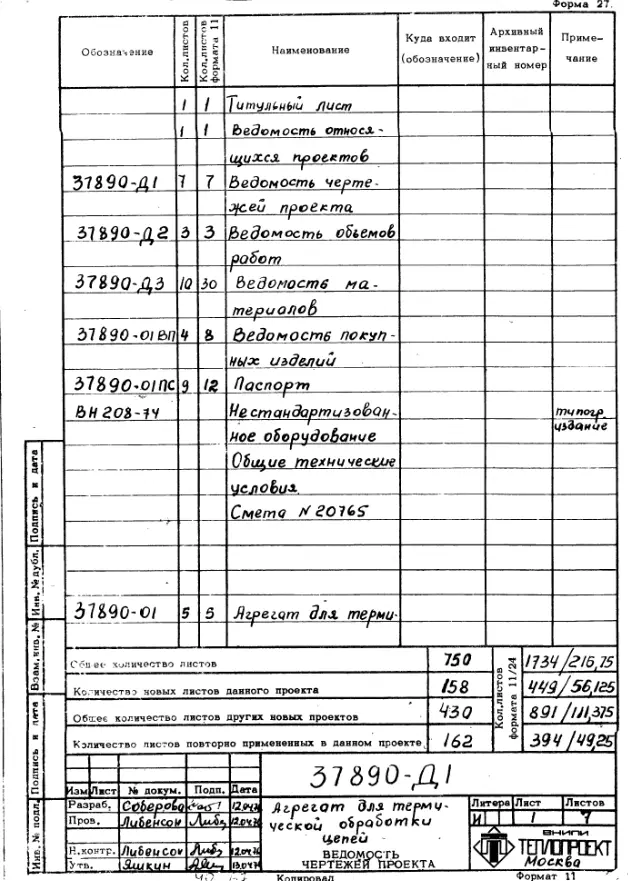 Форма 27.
Обозначение Кол.листов Кол.листов формата 11 Наименование Куда входит (обозначение) Архивный инвентар- ный номер Приме- чание
1 1 Титульный лист
1 1 Ведомость относя-
щихся проектов
37890-Д1 7 7 Ведомость черте-
жей проекта
37890-Д2 3 3 Ведомость объемов
работ
37890-Д3 10 30 Ведомость ма-
териалов
37890-01ВП 4 8 Ведомость покуп-
ных изделий
37890-01ПС 9 12 Паспорт
ВН 208-74 Нестандартизован- типогр.
ное оборудование издание
Общие технические
условия.
Смета N 20765
37890-01 5 5 Агрегат для терми-
Общее количество листов 750 Кол.листов формата 11/24 1734/216,75
Количество новых листов данного проекта 158 449/56,125
Общее количество листов других новых проектов 430 891/111,375
Количество листов повторно примененных в данном проекте 162 394/49,25
Подпись и дата
Инв. № дубл.
Взам.инв. №
Подпись и дата
Инв. № подл.
37890-Д1
Изм Лист № докум. Подп. Дата
Разраб. Соберова
Пров. Либенсон
Н.контр. Либенсон
Утв. Яшкин
Агрегат для терми-
ческой обработки
цепей
ВЕДОМОСТЬ
ЧЕРТЕЖЕЙ ПРОЕКТА
Литера Лист Листов
И 1 7
ВНИПИ
ТЕПЛОПРОЕКТ
Москва
Копировал Формат 11